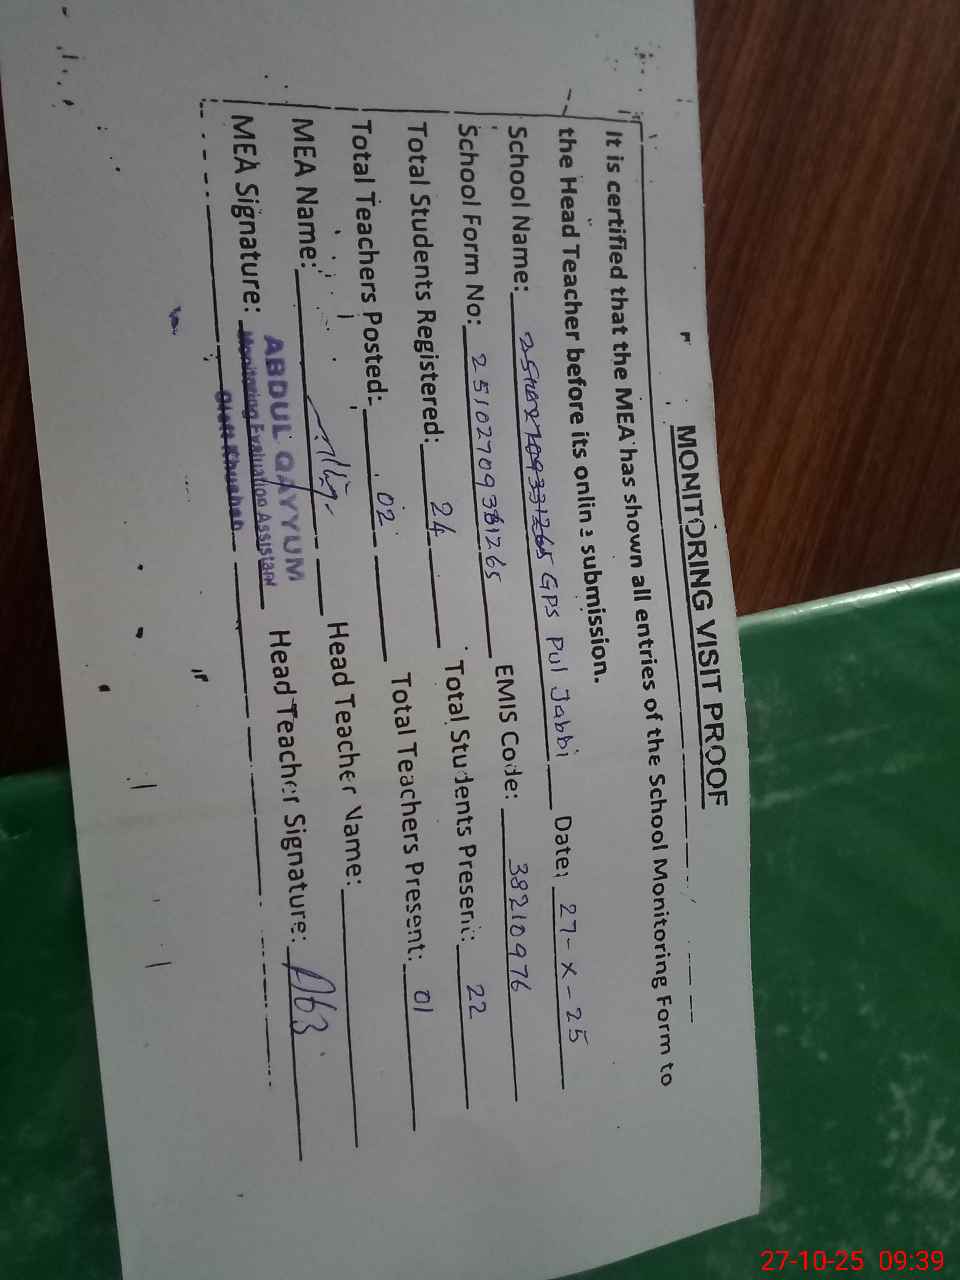 MONITORING VISIT PROOF
It is certified that the MEA has shown all entries of the School Monitoring Form to
the Head Teacher before its online submission.
School Name: 25102709331265 GPS Pul Jabbi Date: 27-X-25
School Form No: 25102709381265 EMIS Code: 38210976
Total Students Registered: 24 Total Students Present: 22
Total Teachers Posted: 02 Total Teachers Present: 01
MEA Name: Head Teacher Name:
ABDUL QAYYUM
MEA Signature: Monitoring Evaluation Assistant Head Teacher Signature:
27-10-25 09:39